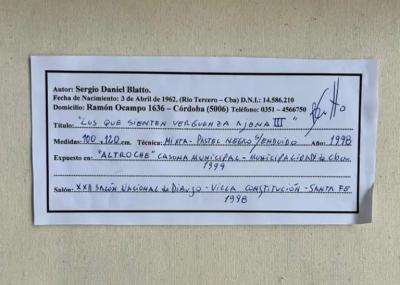 Autor: Sergio Daniel Blatto.
Fecha de Nacimiento: 3 de Abril de 1962, (Río Tercero – Cba) D.N.I.: 14.586.210
Domicilio: Ramón Ocampo 1636 – Córdoba (5006) Teléfono: 0351 – 4566750
Título: "LOS QUE SIENTEN VERGUENZA AJENA III"
Medidas: 100 x 120 cm Técnica: MIXTA - PASTEL NEGRO S/ENDUIDO Año: 1998
Expuesto en: "ALTROCHE" CASONA MUNICIPAL - MUNICIPALIDAD de CBA.
1999
Salón: XXII SALÓN NACIONAL de DIBUJO - VILLA CONSTITUCIÓN - SANTA FE
1998